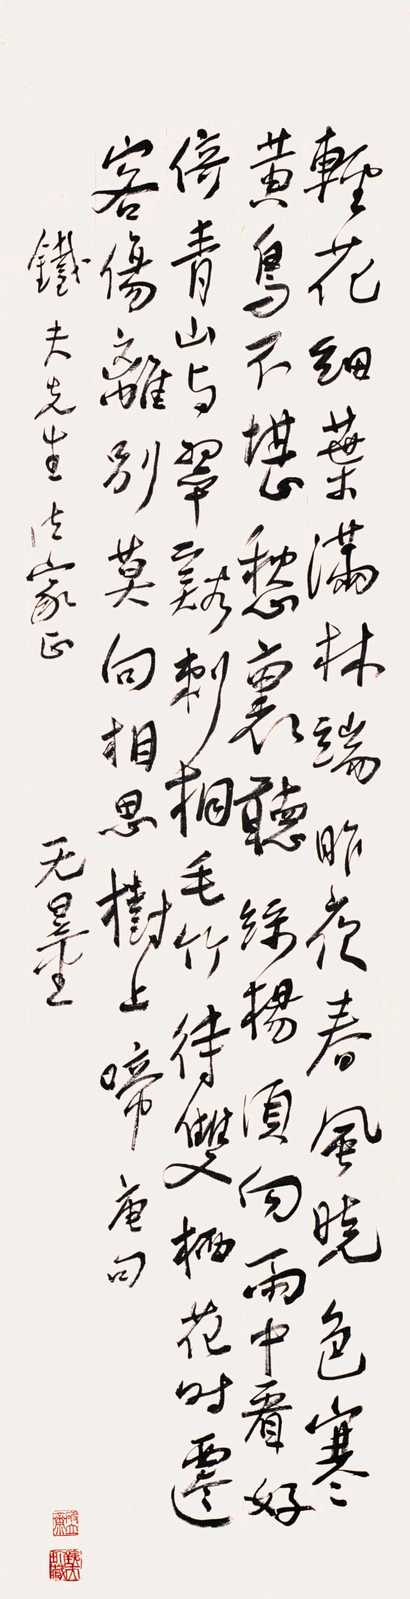 輕花細葉滿林端昨夜春風曉色寒
黃鳥不堪愁裏聽綠楊須向雨中看好
倚青山与翠谿刺桐毛竹待雙栖花時遷
客傷離別莫向相思樹上啼 唐句
鐵夫先生法家正 无量